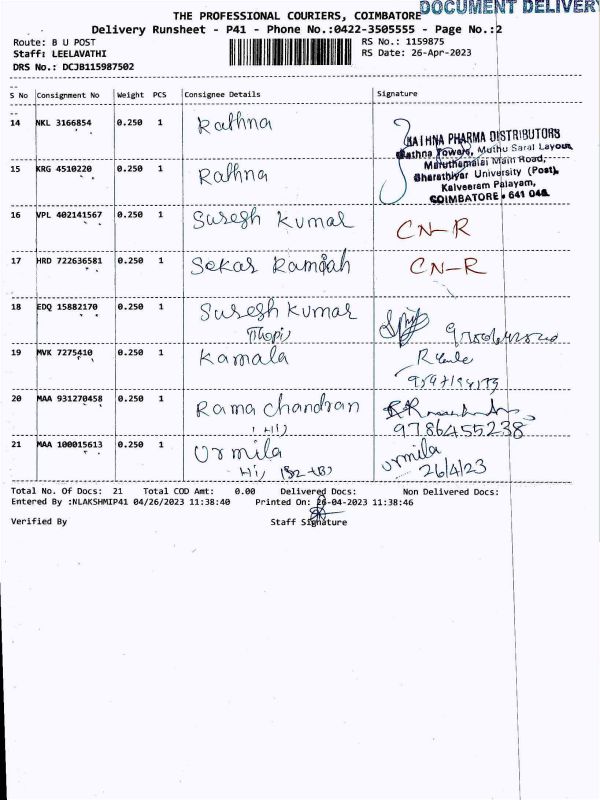 DOCUMENT DELIVERY
THE PROFESSIONAL COURIERS, COIMBATORE
Delivery Runsheet - P41 - Phone No.:0422-3505555 - Page No.:2
Route: B U POST
RS No.: 1159875
Staff: LEELAVATHI
RS Date: 26-Apr-2023
DRS No.: DCJB115987502
S No Consignment No Weight PCS Consignee Details Signature
14 NKL 3166854 0.250 1 Rathna
RATHNA PHARMA DISTRIBUTORS
Rathna Towers, Muthu Saral Layout,
Maruthamalai Main Road,
Bharathiyar University (Post),
Kalveeram Palayam,
COIMBATORE - 641 046.
15 KRG 4510220 0.250 1 Rathna
16 VPL 402141567 0.250 1 Suresh Kumar CN-R
17 HRD 722636581 0.250 1 Sekar Ramiah CN-R
18 EDQ 15882170 0.250 1 Suresh Kumar
19 MVK 7275410 0.250 1 Kamala
20 MAA 931270458 0.250 1 Rama Chandran
9786455238
21 MAA 100015613 0.250 1 Urmila urmila
26/4/23
Total No. Of Docs: 21 Total COD Amt: 0.00 Delivered Docs: Non Delivered Docs:
Entered By :NLAKSHMIP41 04/26/2023 11:38:40 Printed On: 26-04-2023 11:38:46
Verified By Staff Signature